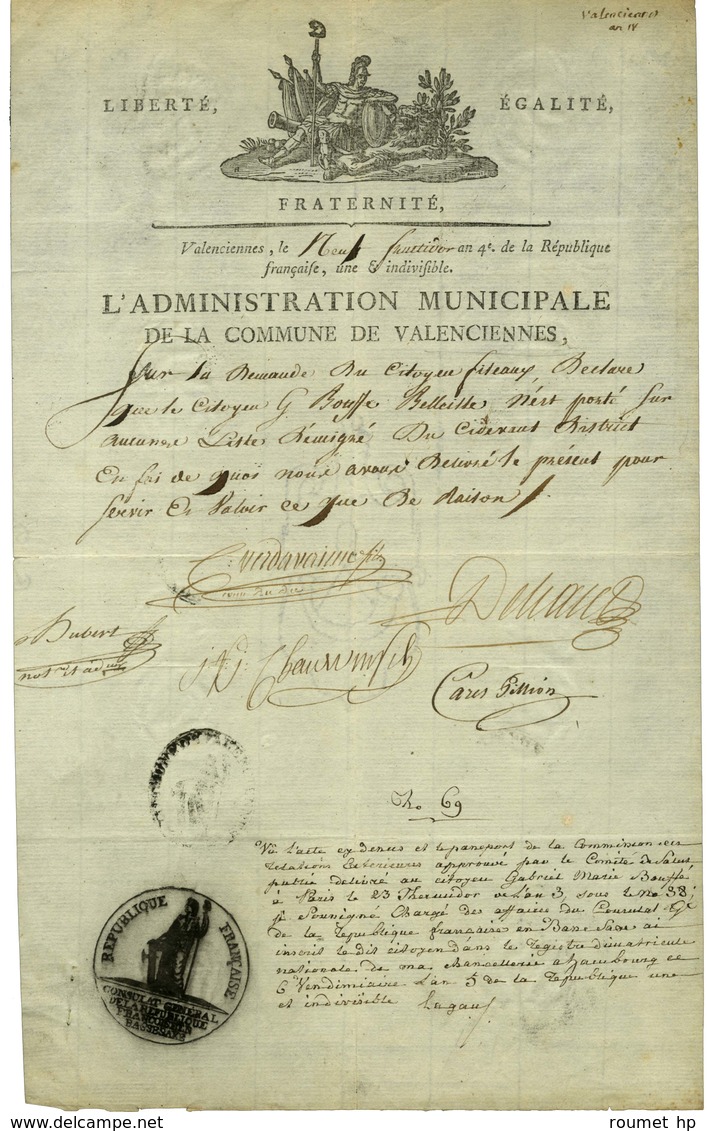 Valenciennes
an IV
LIBERTÉ, ÉGALITÉ,
FRATERNITÉ,
Valenciennes, le Neuf fructidor an 4e. de la République
française, une & indivisible.
L'ADMINISTRATION MUNICIPALE
DE LA COMMUNE DE VALENCIENNES,
Sur la Demande Du Citoyen Declare
que le Citoyen G Bouffé Belleisle N'est porté sur
aucune Liste D'emigré Du Cidevant District
En foi de quoi nous avons Delivré le présent pour
servir Et Valoir ce que De Raison
Verdavainne fils
Dubert
J Chauvin fils
Carez Pillion
No 69
Vu l'acte cy dessus et le passeport de la Commission des
relations Exterieures approuvé par le Comité de Salut
public délivré au citoyen Gabriel Marie Bouffé
à Paris le 23 Thermidor de L'an 3, sous le No 38;
je Soussigné Chargé des affaires du Consulat Gl
de la republique française en Basse Saxe ai
inscrit le dit citoyen dans le registre d'immatricule
nationale de ma chancellerie a hambourg ce
6 Vendimiaire L'an 5 de la republique une
et indivisible Lagau
REPUBLIQUE FRANÇAISE
CONSULAT GÉNÉRAL
DE LA REPUBLIQUE
FRANÇAISE
BASSE SAXE
roumet hp